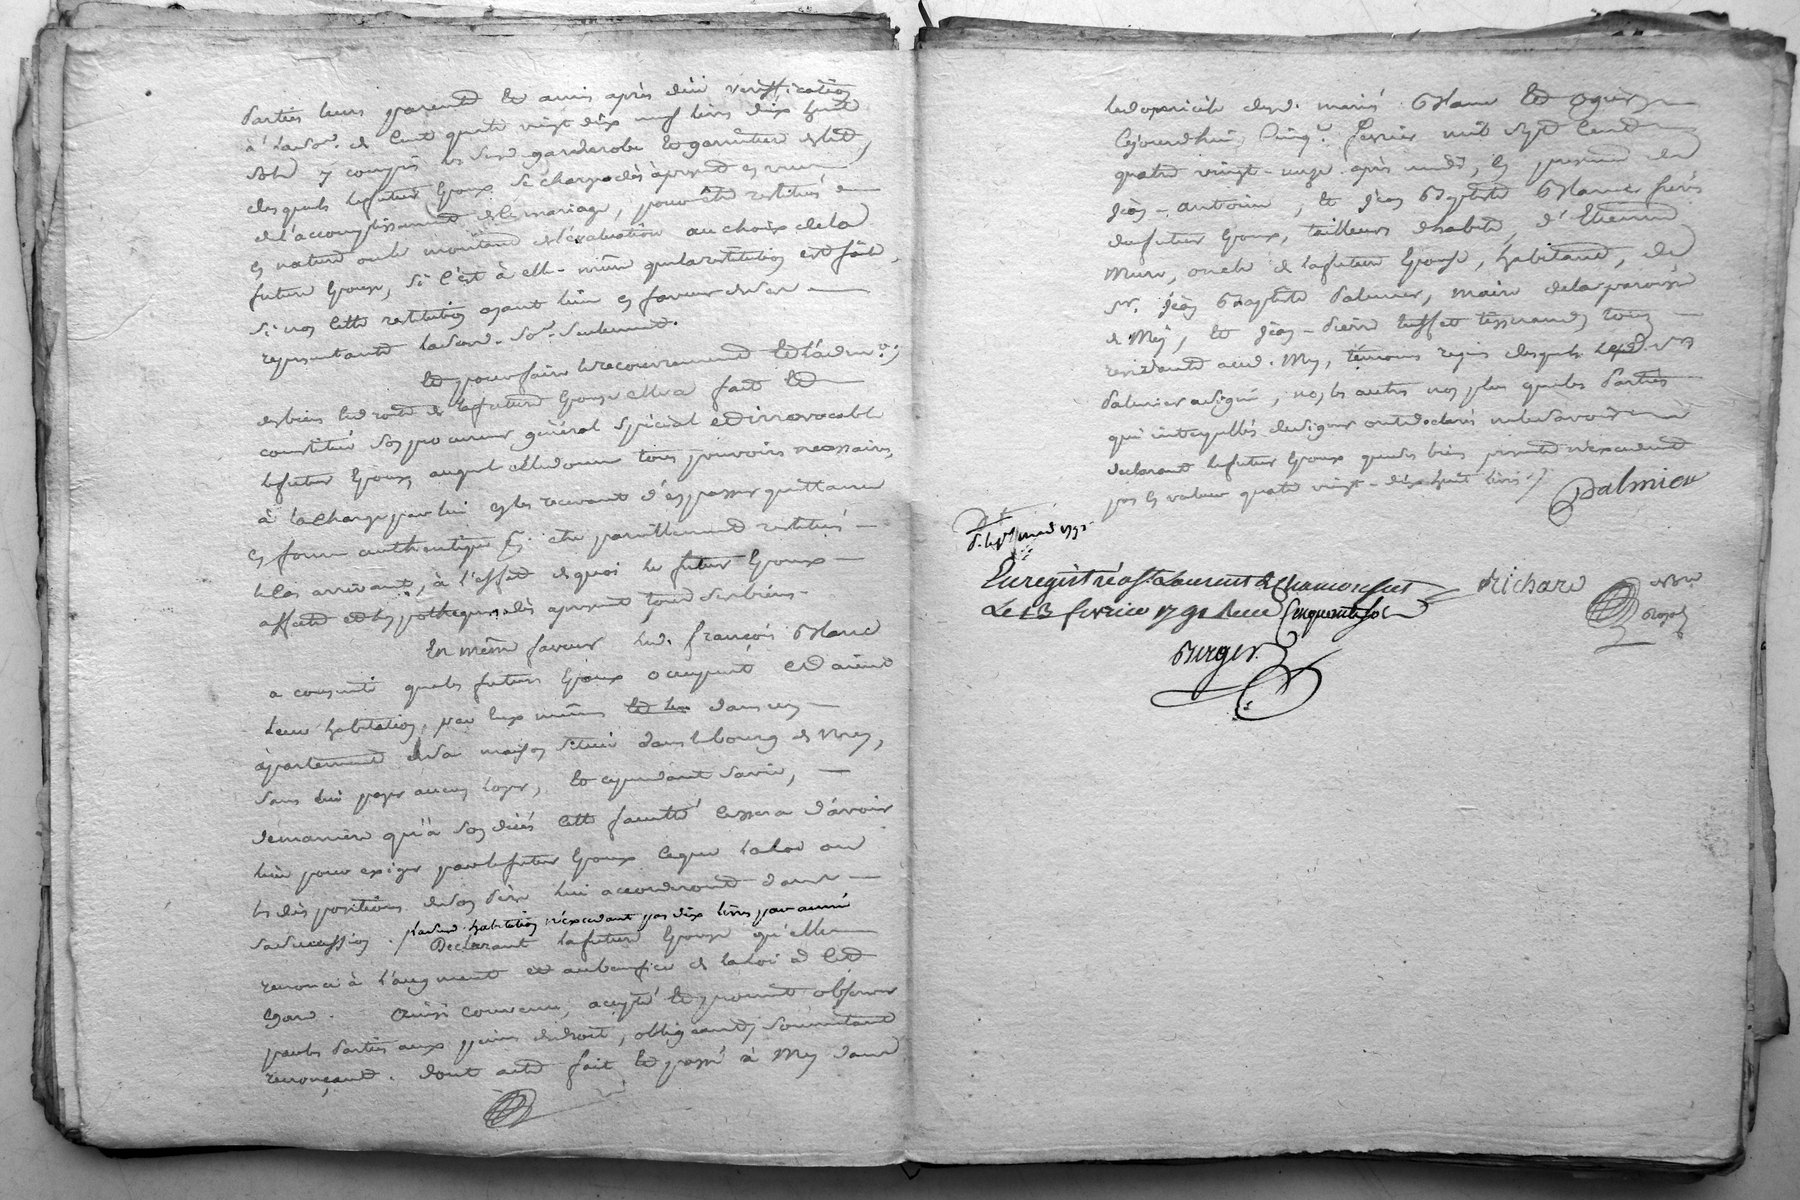 Parties leurs parents et amis après düe vériffication
à la so.e de Cent quatre vingt dix neuf livres dix huit
sols y compris les susd. garderobe et garniture de lit,
desquels le futur Epoux se charge dès àprésent en vüe
de l'accomplissement de ce mariage, pour être restitués
en nature ou le montant de l'évaluation au choix de la
future Epouse, si c'est à elle-même que la restitution est faite,
si non cette restitution ayant lieu en faveur de ses
représentants lad. so.e seulement.
Et pour faire le recouvrement et l'adm.on
des biens et droits de la future Epouse elle a fait et
constitué son procureur général spécial et irrévocable
le futur Epoux, auquel elle donne tous pouvoirs nécessaires,
à la charge par lui en les recevant d'en passer quittance
en forme authentique pr. etre pareillement restitués
le cas arrivant, à l'effet de quoi le futur Epoux
affecte et hypothèque dès àprésent tous ses biens.
En même faveur led. françois Blanc
a consenti que les futurs Epoux occupent et aient
leur habitation, par eux mêmes et leu dans un
apartement de sa maison située dans le bourg de Mey,
sans lui payer aucun loyer, et cependant sa vie,
de manière qu'à son décés cette faculté cessera d'avoir
lieu pour exiger par le futur Epoux ce que la loi ou
les dispositions de son Père lui accorderont dans
sa succession. lad. habitation n'éxcedant pas dix livres par année
Déclarant la future Epouse qu'elle
renonce à l'augment et au benefice de la loi à cet
egard. Ainsi convenu, accepté et promit observer
par les Parties aux peines de droit, obligeant, soumettant
renonçant. dont acte fait et passé à Mey dans
le domicile desd. mariés Blanc et Ogier
Cejourdhui, cinq.e fevrier mil sept cent
quatre vingt-onze après midi, en presence de
Jean-Antoine, et Jean Baptiste Blanc frères
du futur Epoux, tailleurs d'habits, d'Etienne
Mure, oncle de la future Epouse, habitant, de
sr. Jean Baptiste Palmier, maire de la paroisse
de Mey, et Jean-Pierre tisserand, tous
résidants aud. Mey, témoins requis desquels led. sr
Palmier a signé, non les autres non plus que les Parties
qui interpellés de signer ont déclaré ne le savoir
declarant le futur Epoux que ses biens présents n'excedent
pas en valeur quatre vingt-dix huit livres./.
Palmier
1791
Enregistré à St. Laurent de Chamousset
Le 13 fevrier 1791 Reçu Cinquante sols
Richard
Berger